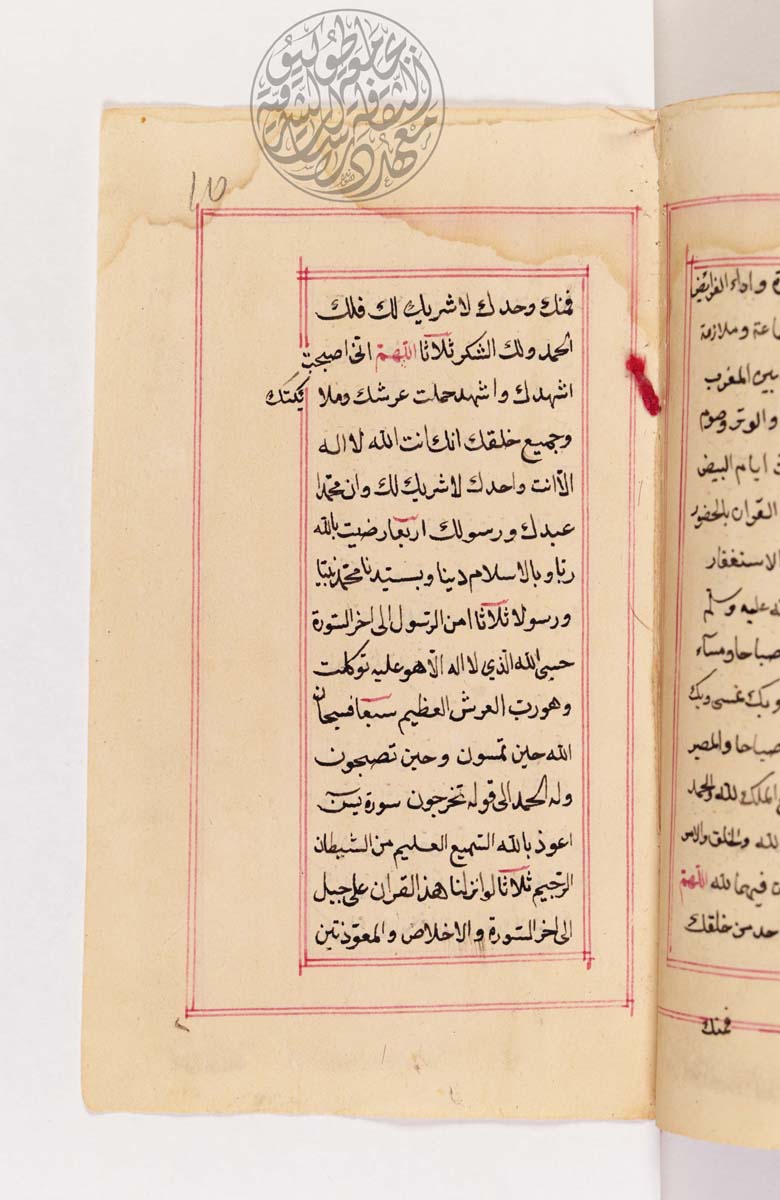 ١٥
فمنك وحدك لا شريك لك فلك
الحمد ولك الشكر ثلاثا اللهم اني اصبحت
اشهدك واشهد حملت عرشك وملا ئكتك
وجميع خلقك انك انت الله لا اله
الّا انت واحدك لا شريك لك وان محمّدا
عبدك ورسولك اربعا رضيت بالله
ربّا وبالاسلام دينا وبسيّدنا محمّد نبيّا
ورسولا ثلاثا امن الرّسول الى اخر السّورة
حسبي الله الّذي لا اله الّا هو عليه توكلت
وهو ربّ العرش العظيم سبعا فسبحان
الله حين تمسون وحين تصبحون
وله الحمد الى قوله تخرجون سورة يسٓ
اعوذ بالله السّميع العليم من الشّيطان
الرّجيم ثلاثا لو انزلنا هذ القران على جبل
الى اخر السّورة والاخلاص والمعوّذتين
واداء الفرايض
وملازمة
بين المغرب
والوتر وصوم
ايام البيض
القران بالحضور
الاستغفار
عليه وسلّم
صباحا ومسآء
وبك نمسي وبك
صباحا والمصير
الملك لله والحمد
لله والخلق والامر
فيهما لله اللهم
حد من خلقك
فمنك